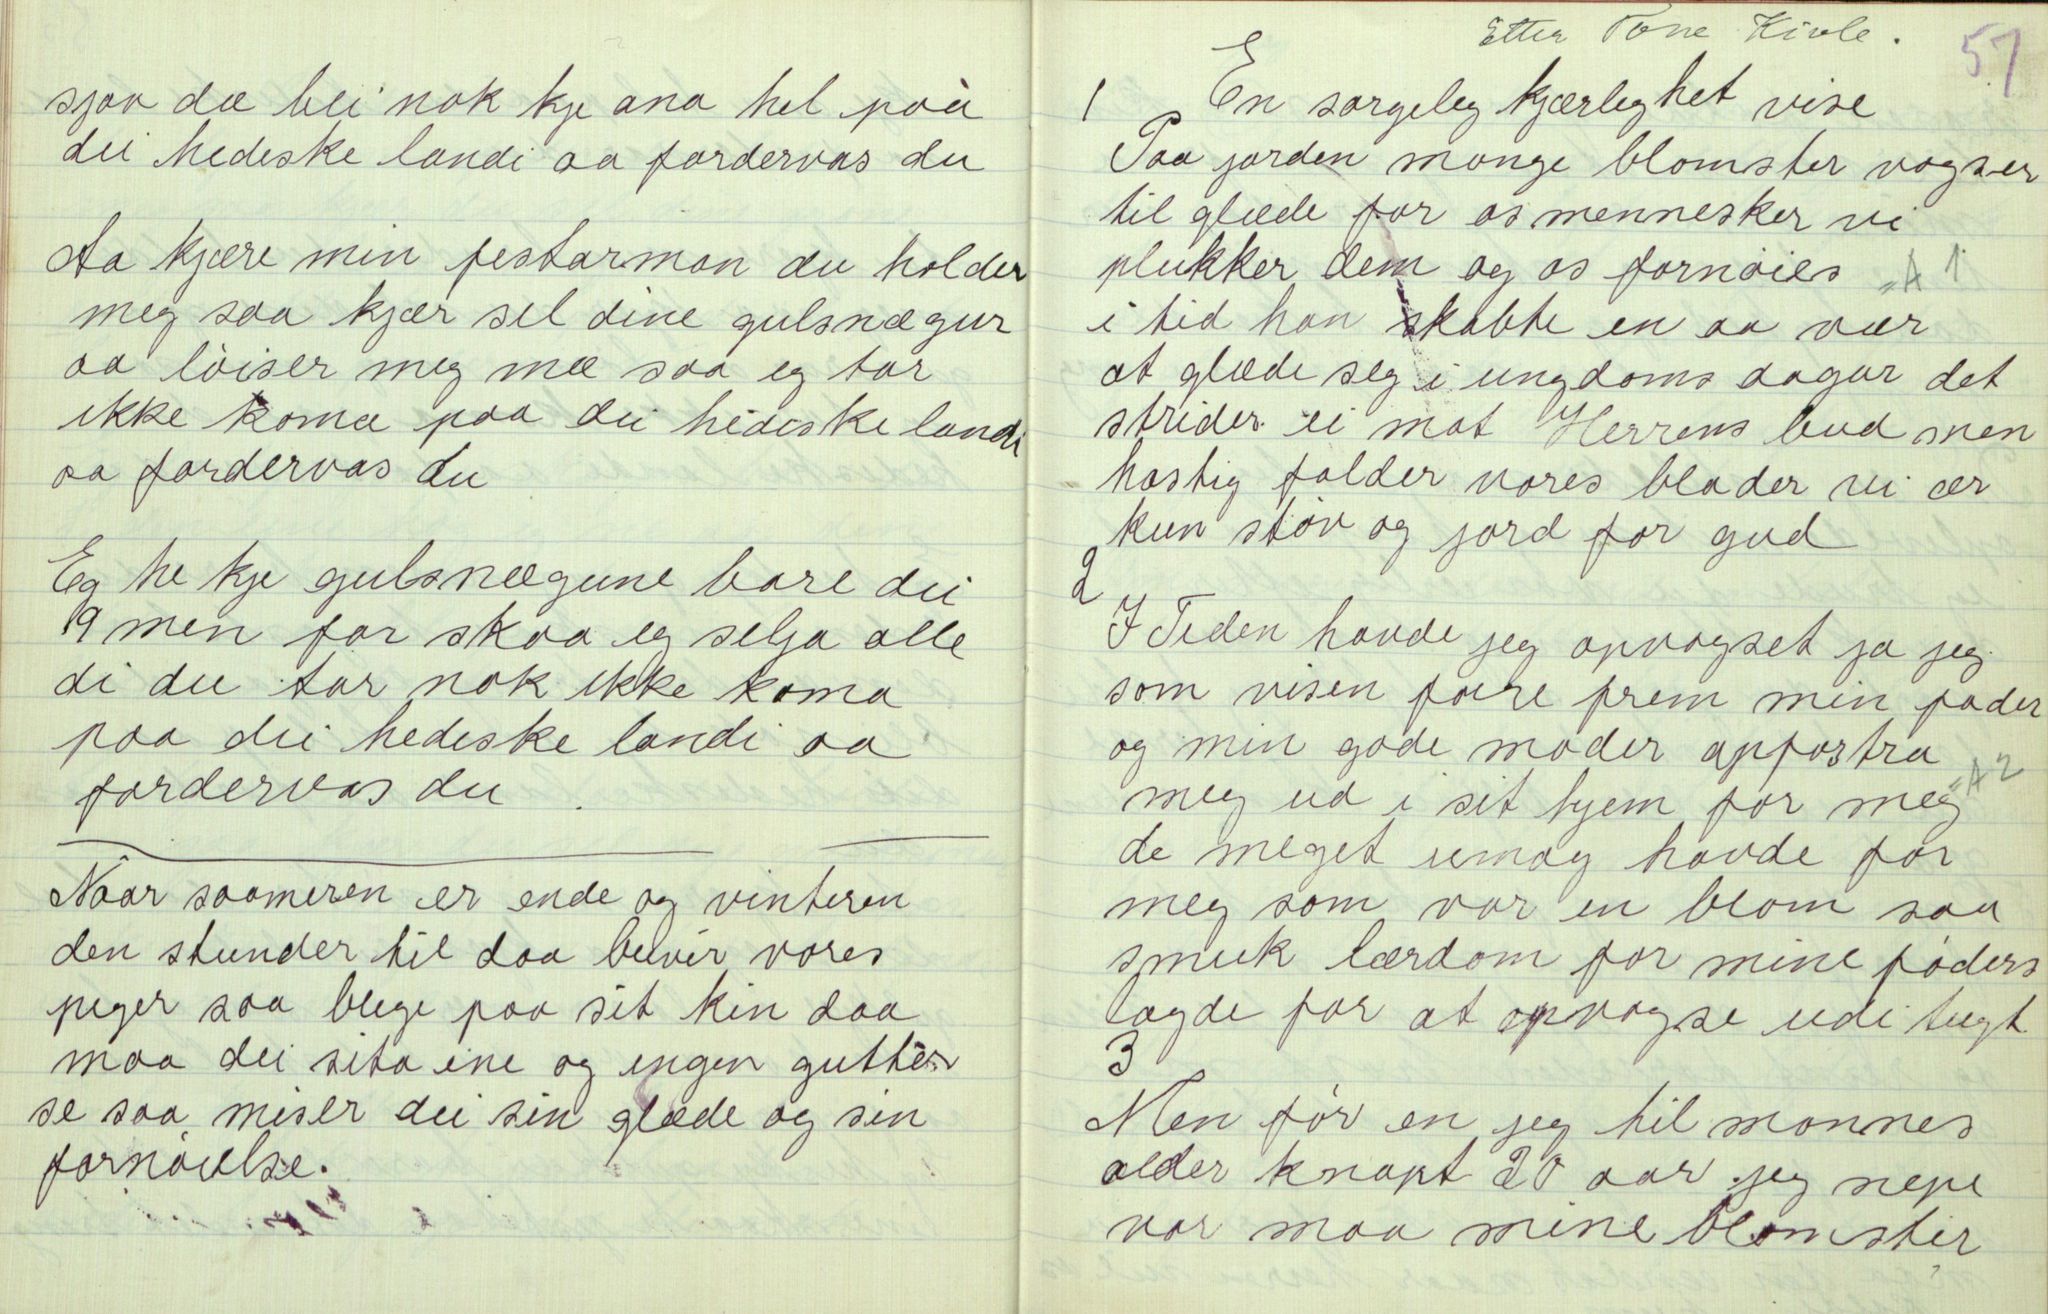 sjaa dæ blei nok kje ana hel paa
dei hedeske landi aa fordervas du
Aa kjære min festarman du holder
meg saa kjær sel dine gulsnægur
aa löiser meg mæ saa eg tar
ikke koma paa dei hedeske landi
aa fordervas du
Eg he kje gulsnægune bare dei
9 men for skaa eg selja alle
di du tar nok ikke koma
paa dei hedeske landi aa
fordervas du
Naar saameren er ende og vinteren
den stunder til daa blivir vores
peger saa blege paa sit kin daa
maa dei sita ine og ingen gutter
se saa miser dei sin glæde og sin
fornöielse.
Etter Tone Kivle.
57
1 En sørgeleg kjærleghet vise
Paa jorden mange blomster vogser
til glæde for os mennesker vi
plukker dem og os fornöies
A 1
i tid han skabte en aa vær
at glæde seg i ungdoms dagar det
strider ei mot Herrens bud men
hastig falder vores blader vi ær
kun stöv og jord for gud
2
I Tiden havde jeg opvogset ja jeg
som visen före frem min fader
og min gode moder opfostra
A 2
meg ud i sit hjem for meg
de meget umag havde for
meg som var en blom saa
smuk lærdom for mine föders
lagde for at opvogse udi tugt
3
Men för en jeg til mannes
alder knapt 20 aar jeg nepe
var maa mine blomster